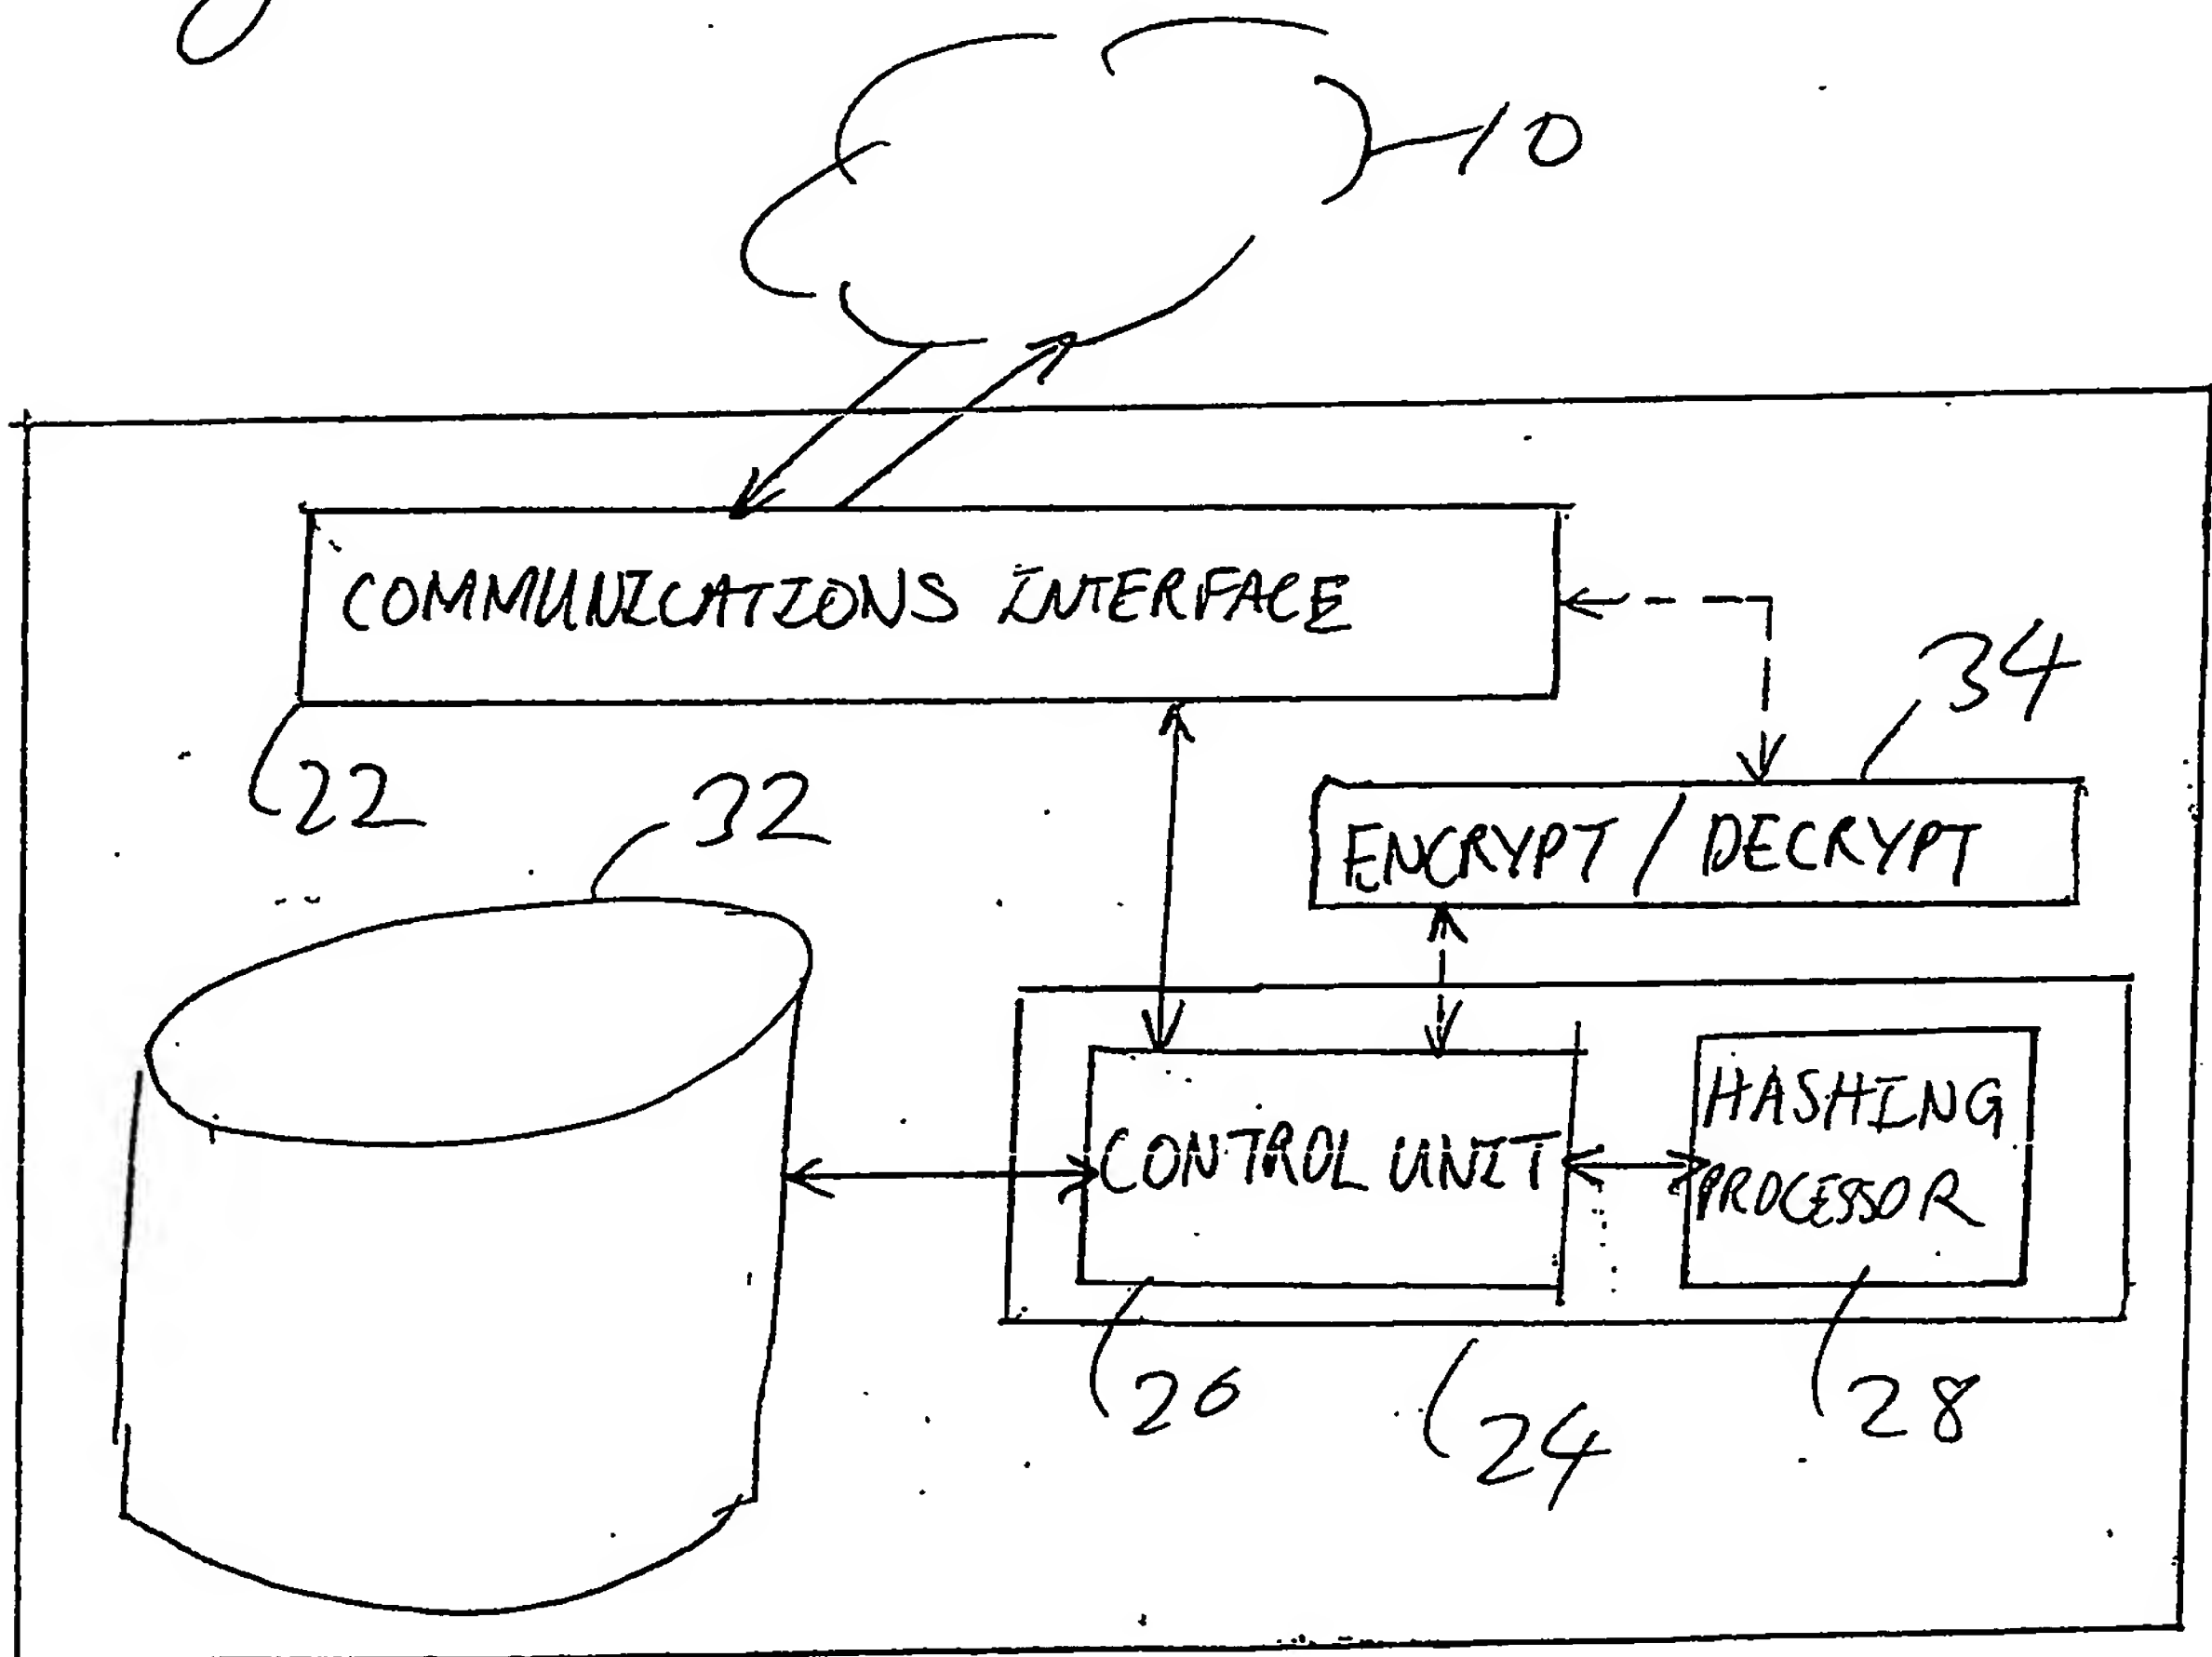 10
COMMUNICATIONS INTERFACE
34
22
32
ENCRYPT / DECRYPT
HASHING
CONTROL UNIT
PROCESSOR
26
24
28